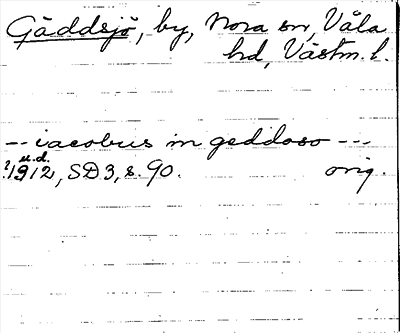 Gäddsjö, by, Nora sn, Våla
hd, Västm. l.
-- iacobus in geddoso ---
u.d.
?1912, SD3, s. 90. orig.